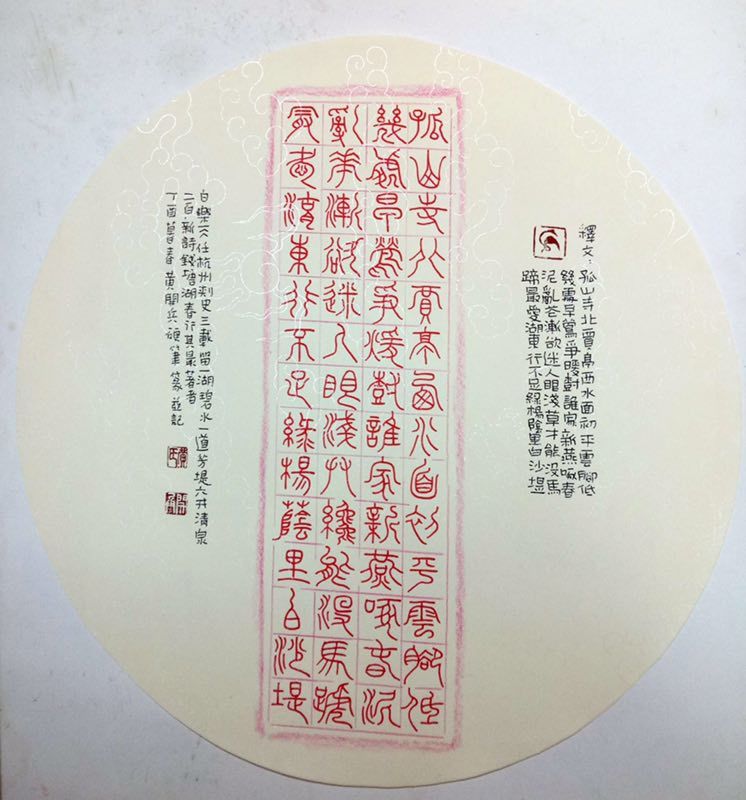 釋文:孤山寺北賈亭西水面初平雲脚低
幾處早鶯爭暖尌誰家新燕啄春
泥亂花漸欲迷人眼淺草才能没馬
蹄最愛湖東行不足綠楊陰里白沙堤
孤山寺北賈亭西水面初平雲腳低
幾處早鶯爭暖尌誰家新燕啄春泥
亂華漸欲迷人眼淺艸纔能没馬蹏
最愛湖東行不足綠楊蔭里白沙堤
白樂天任杭州刺史三載留一湖碧水一道芳堤六井清泉
二百新詩錢塘湖春行其最著者
丁酉暮春黄開兵硬筆篆並記